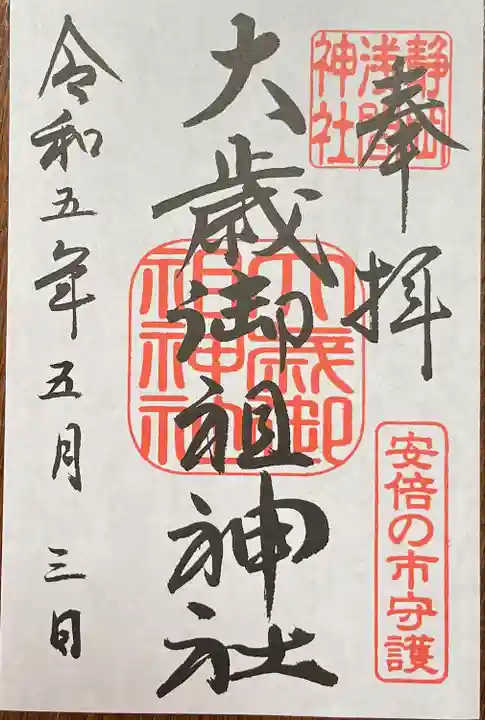 奉拝
静岡
浅間
神社
安倍の市守護
大歳御祖神社
大歳御
祖神社
令和五年五月三日